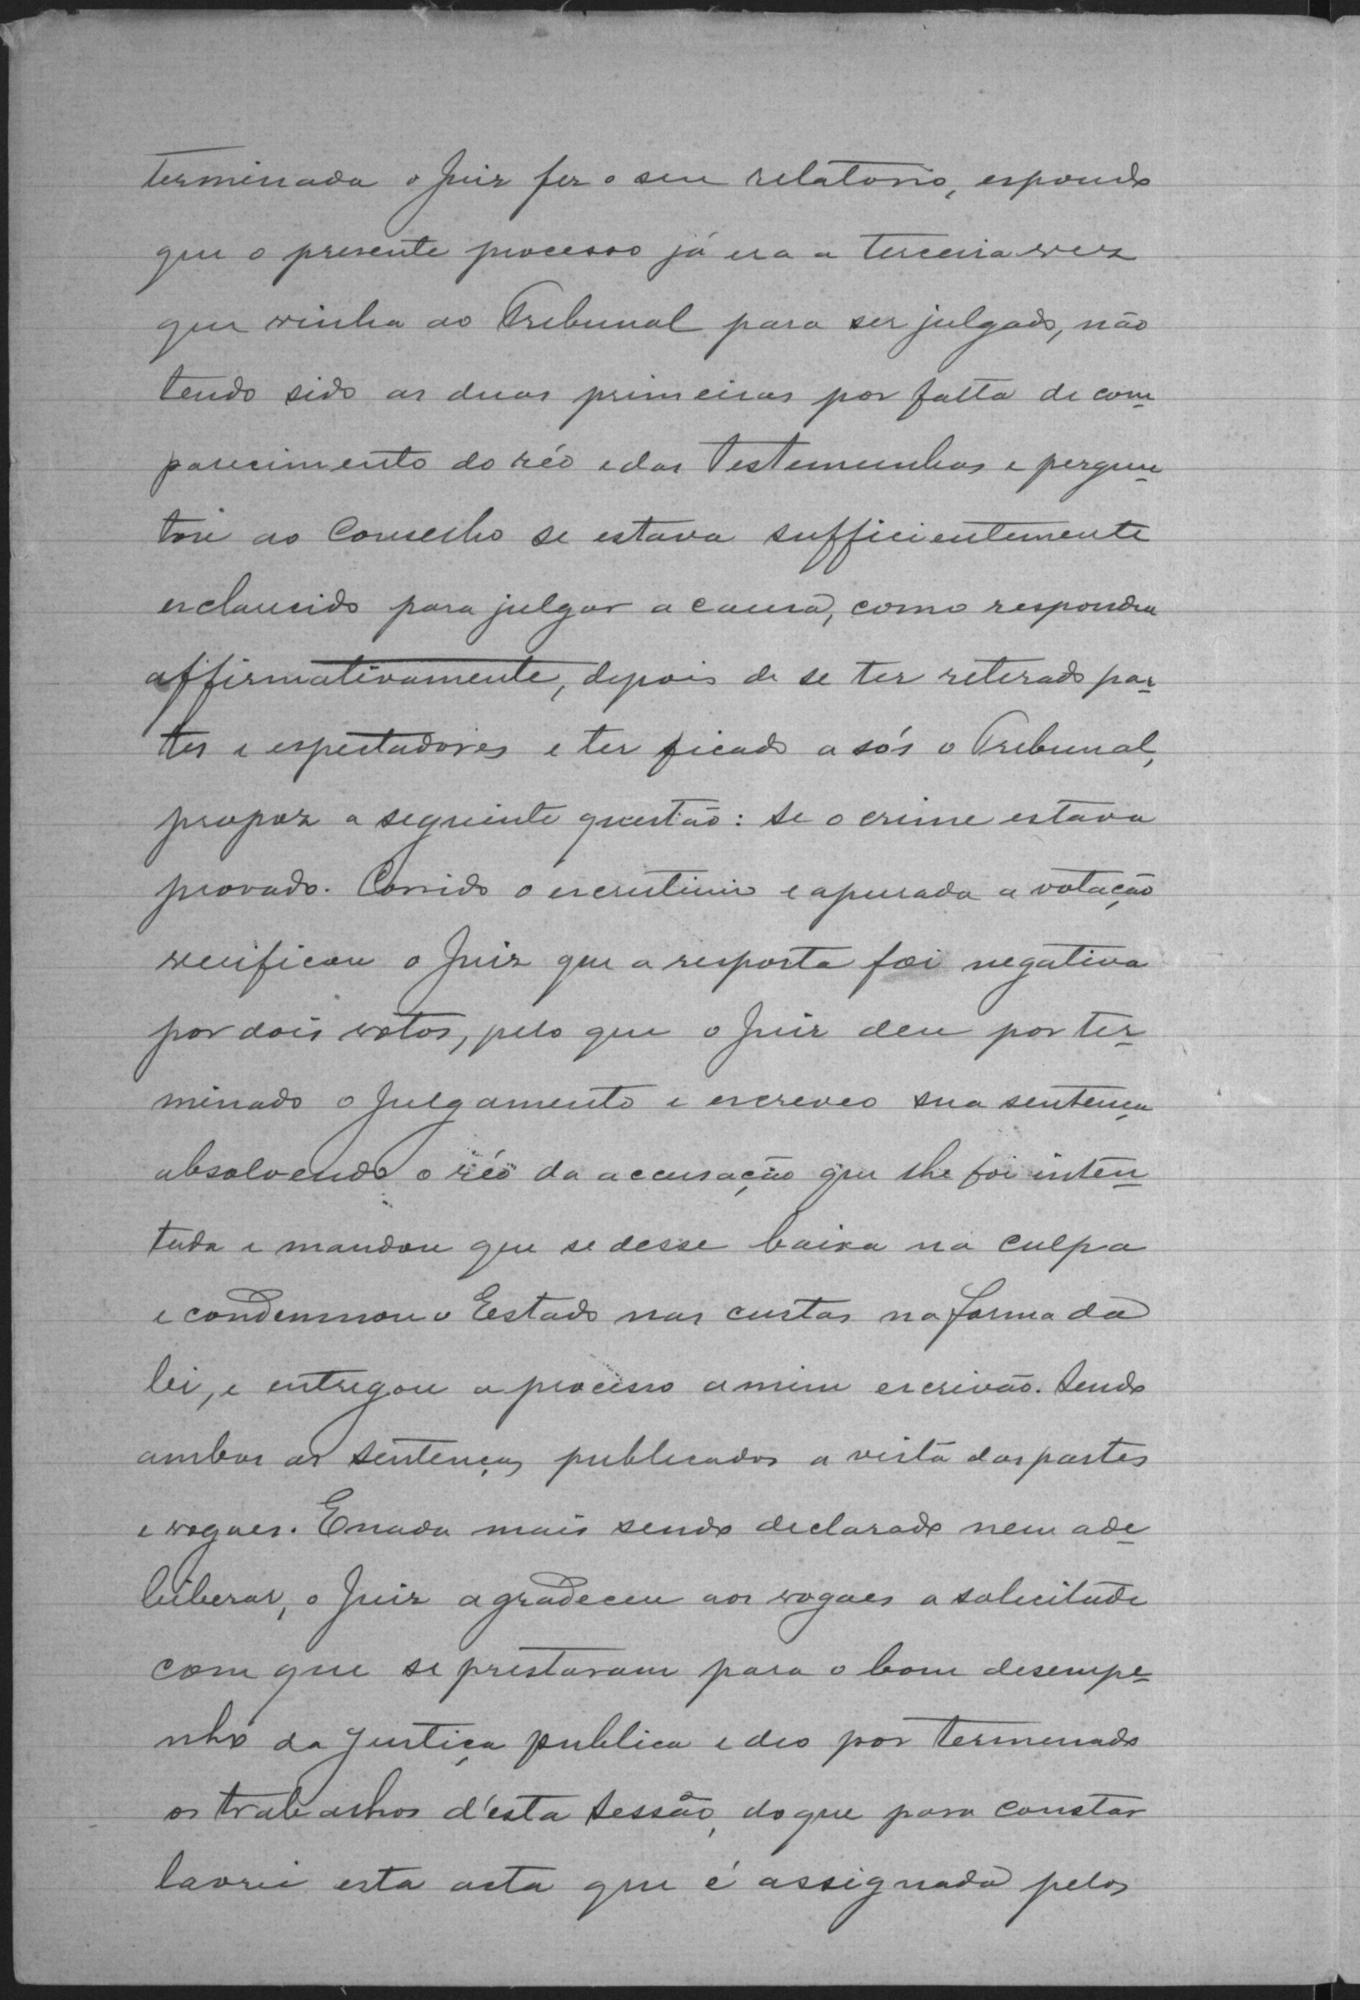 terminada o Juiz fez o seu relatorio, espondo
que o presente processo já era a terceira vez
que vinha ao Tribunal para ser julgado, não
tendo sido as duas primeiras por falta de com-
parecimento do réo e das Testemunhas e pergun-
tou ao Conselho se estava sufficientemente
esclarecido para julgar a causa, como respondeu
affirmativamente, depois de se ter reterado par-
tes e espectadores e ter ficado a sós o Tribunal,
propoz a seguinte questão: se o crime estava
provado. Corrido o escrutinio e apurada a votação
verificou o Juiz que a resposta foi negativa
por dois votos, pelo que o Juiz deu por ter-
minado o Julgamento e escreveo sua sentença
absolvendo o réo da accusação que lhe foi inten-
tada e mandou que se desse baixa na culpa
e condemnou o Estado nas custas na forma da
lei, e entregou o processo a mim escrivão. Sendo
ambas as sentenças publicadas a vista das partes
e vogaes. E nada mais sendo declarado nem a de-
liberar, o Juiz agradeceu aos vogaes a solicitude
com que se prestaram para o bom desempe-
nho da Justiça publica e deo por terminado
os trabalhos d'esta Sessão, do que para constar
lavrei esta acta que é assignada pelos